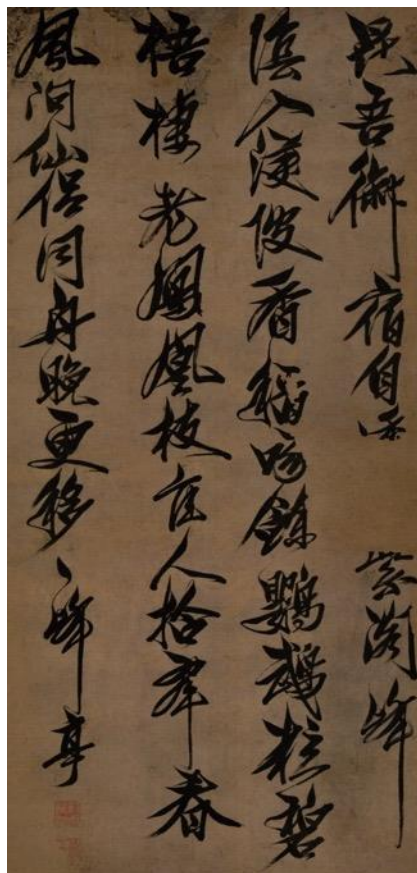 昆吾御宿自 紫閣峰
陰入渼陂香稻啄餘鸚鵡粒碧
梧棲老鳳凰枝佳人拾翠春
風問仙侶同舟晚更移